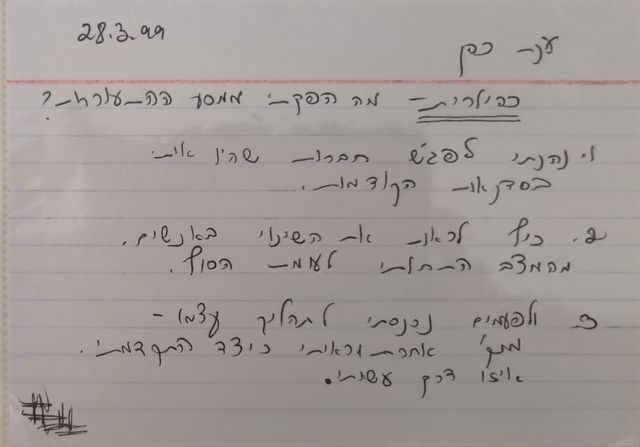 28.3.99
ענת כהן
כהילרית - מה הפקתי ממסע ההתעוררות?
1) נהנתי לפגש חברות שהיו איתי
בסדנאות הקודמות.
2. כיף לראות את השינוי באנשים.
מהמצב התחלתי לעומת הסוף.
3 ולפעמים נכנסתי לתהליך עצמו -
אחרת וראיתי כיצד התקדמתי.
איזו דרך עשיתי.